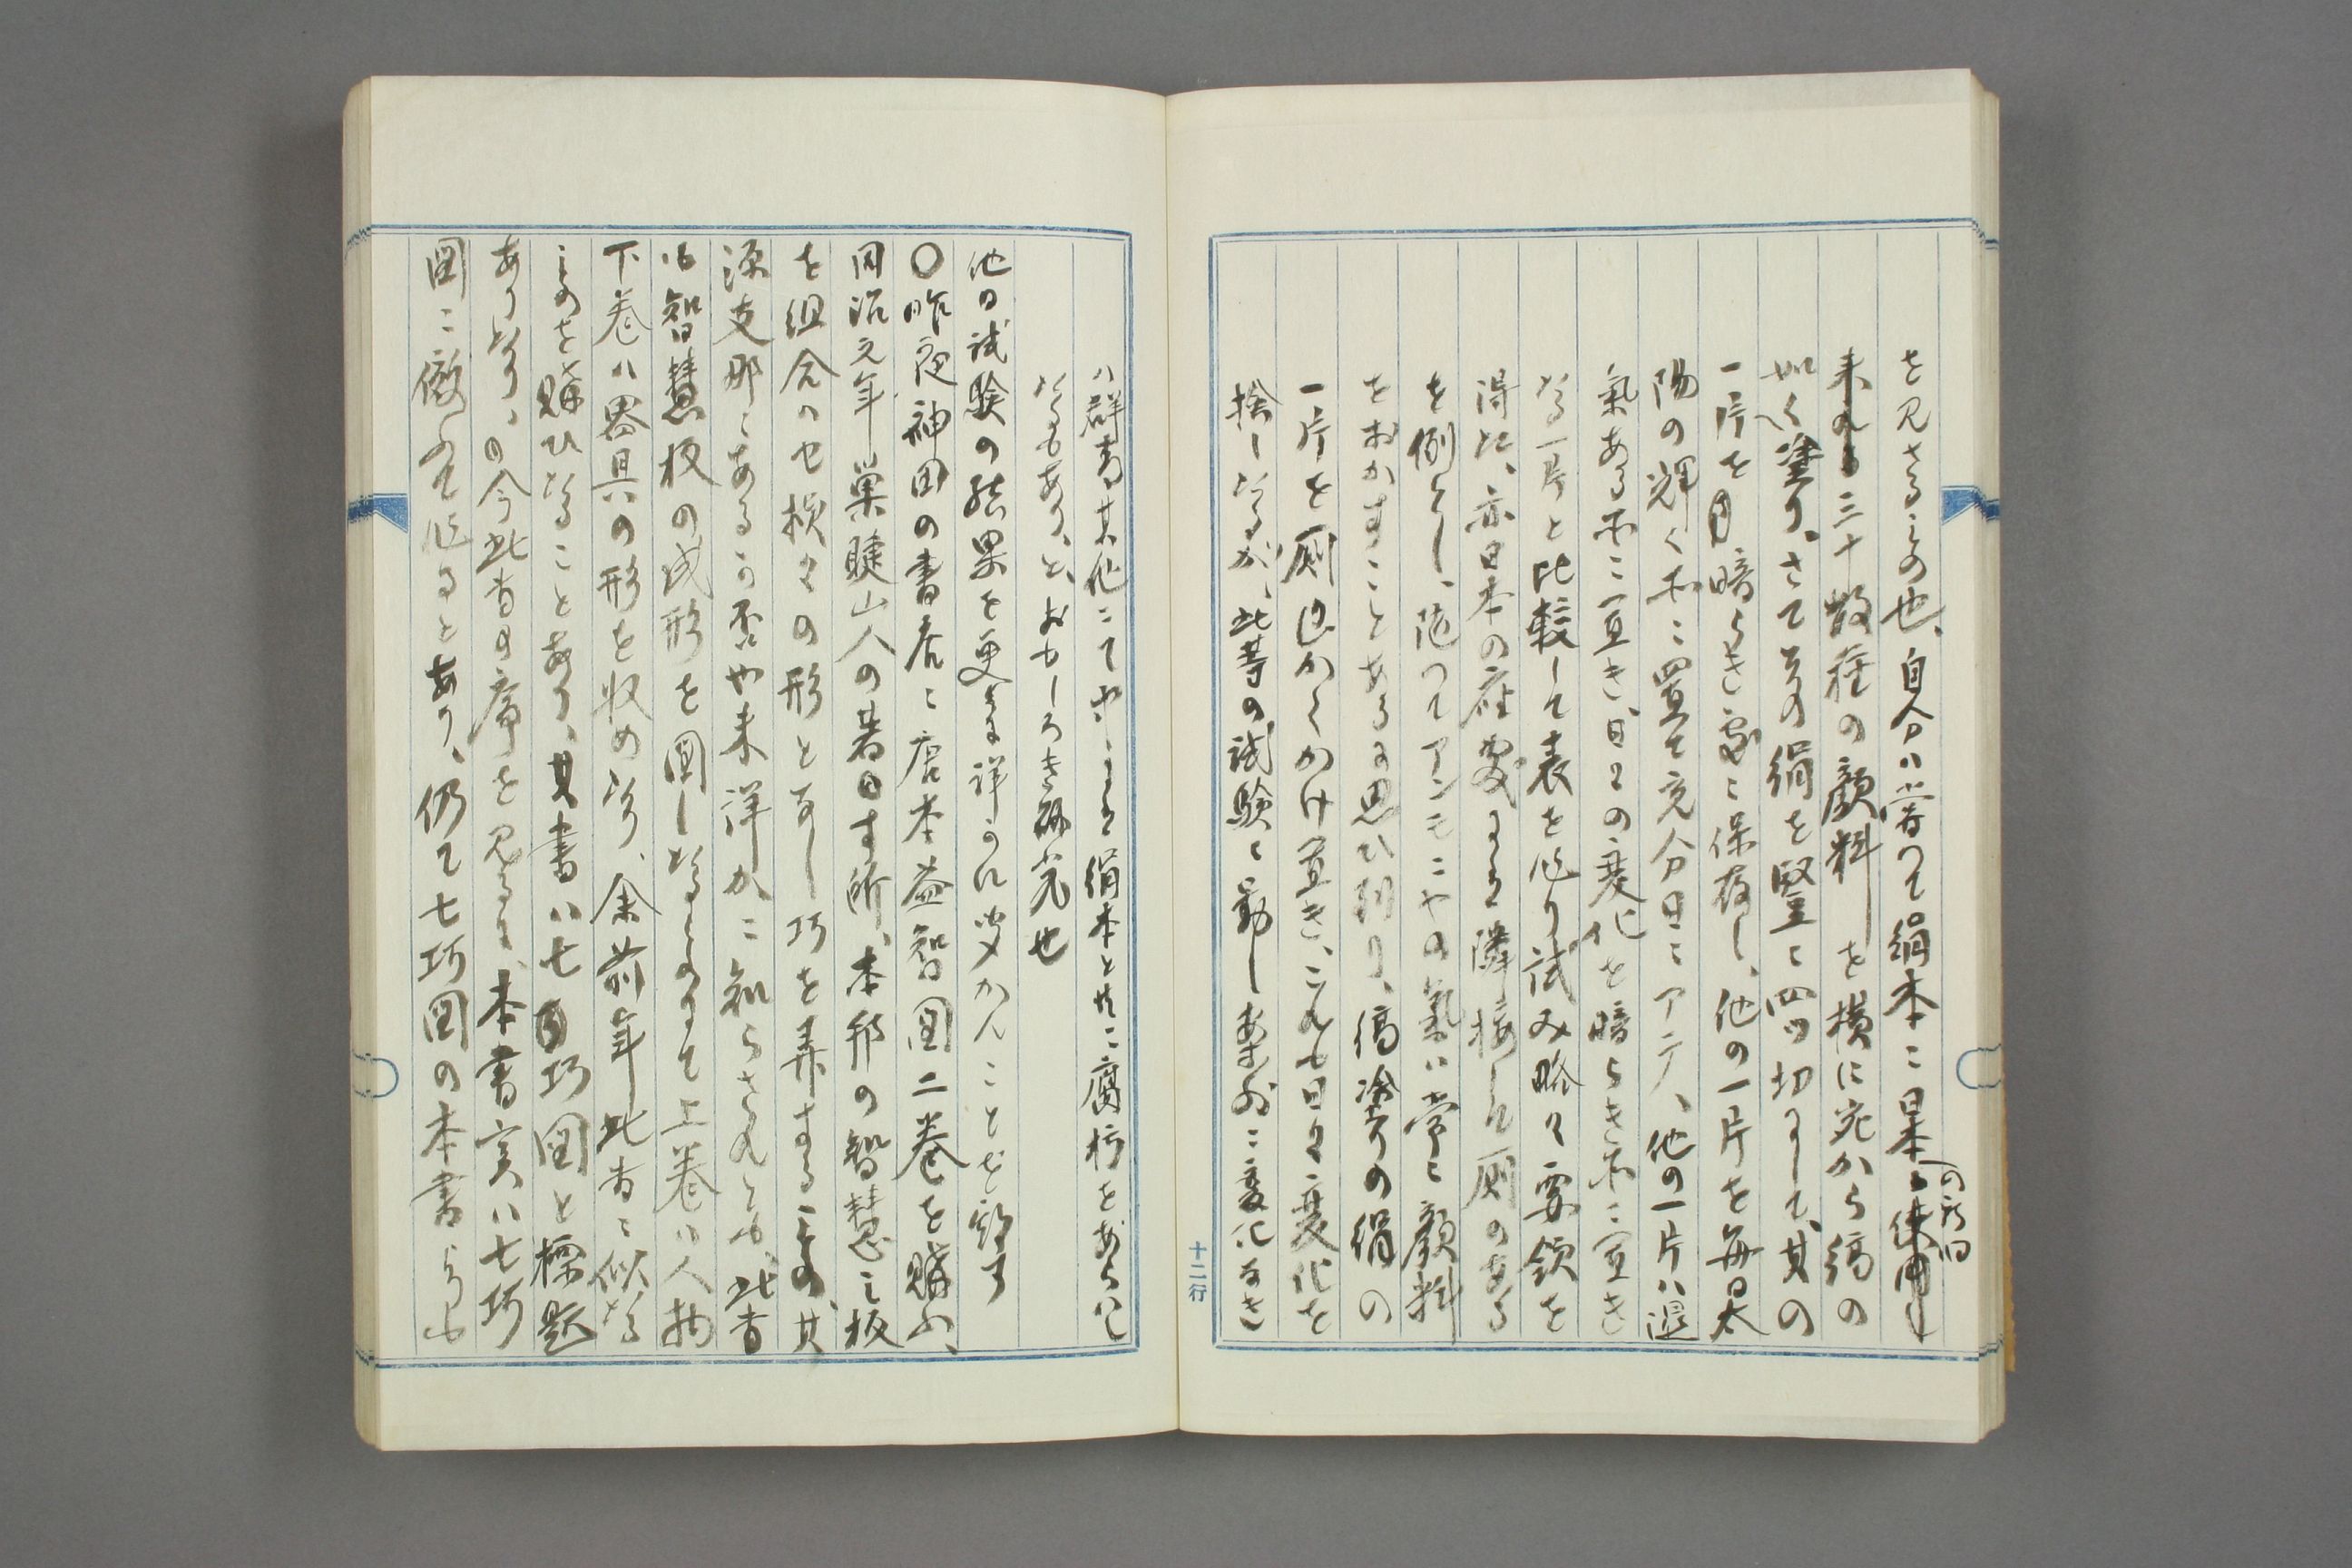 を見さるもの也、自分ハ嘗つて絹本ニ日本の新旧使用し
来れる三十数種の顔料を横に宛から縞の
如く塗り、さてその絹を竪ニ四ツ切りして、其の
一片を暗らき処ニ保存し、他の一片を毎日太
陽の輝く所ニ置て充分日ニアテ、他の一片ハ湿
氣ある所ニ置き、日々の変化を暗らき所ニ置き
たる一片と比較して表を作り試み略々要領を
得た、亦日本の座敷ハ隣接して厠のある
を例とし、随つてアンモニヤの氣ハ常ニ顔料
をおかすことあるを思ひ到り、縞塗りの絹の
一片を厠近かくかけ置き、これも日々変化を
検したるが、此等の試験ニ動しあまりニ変化なき
十二行
ハ群青其他ニて中ニは絹本と共ニ腐朽をあらハし
たるもあり、と、おもしろき研究也
他日試験の結果を更ニ詳かに聞かんことを約す
〇昨夜神田の書店ニ唐本益智図二巻を購ふ、
同治元年巣睫山人の著ハす所、本邦の智慧之板
を組合ハせ様々の形となし巧を弄するもの、其
源支那ニあるか否や未詳かニ知らされとも、此書
ハ智慧板の成形を図したるものにて上巻ハ人物
下巻ハ器具の形を収めたり、余前年此書ニ似たる
ものを購ひたることあり、其書ハ七巧図と標題
ありたり、今此書の序を見るに、本書実ハ七巧
図ニ傚ふて作るとあり、仍て七巧図の本書らも